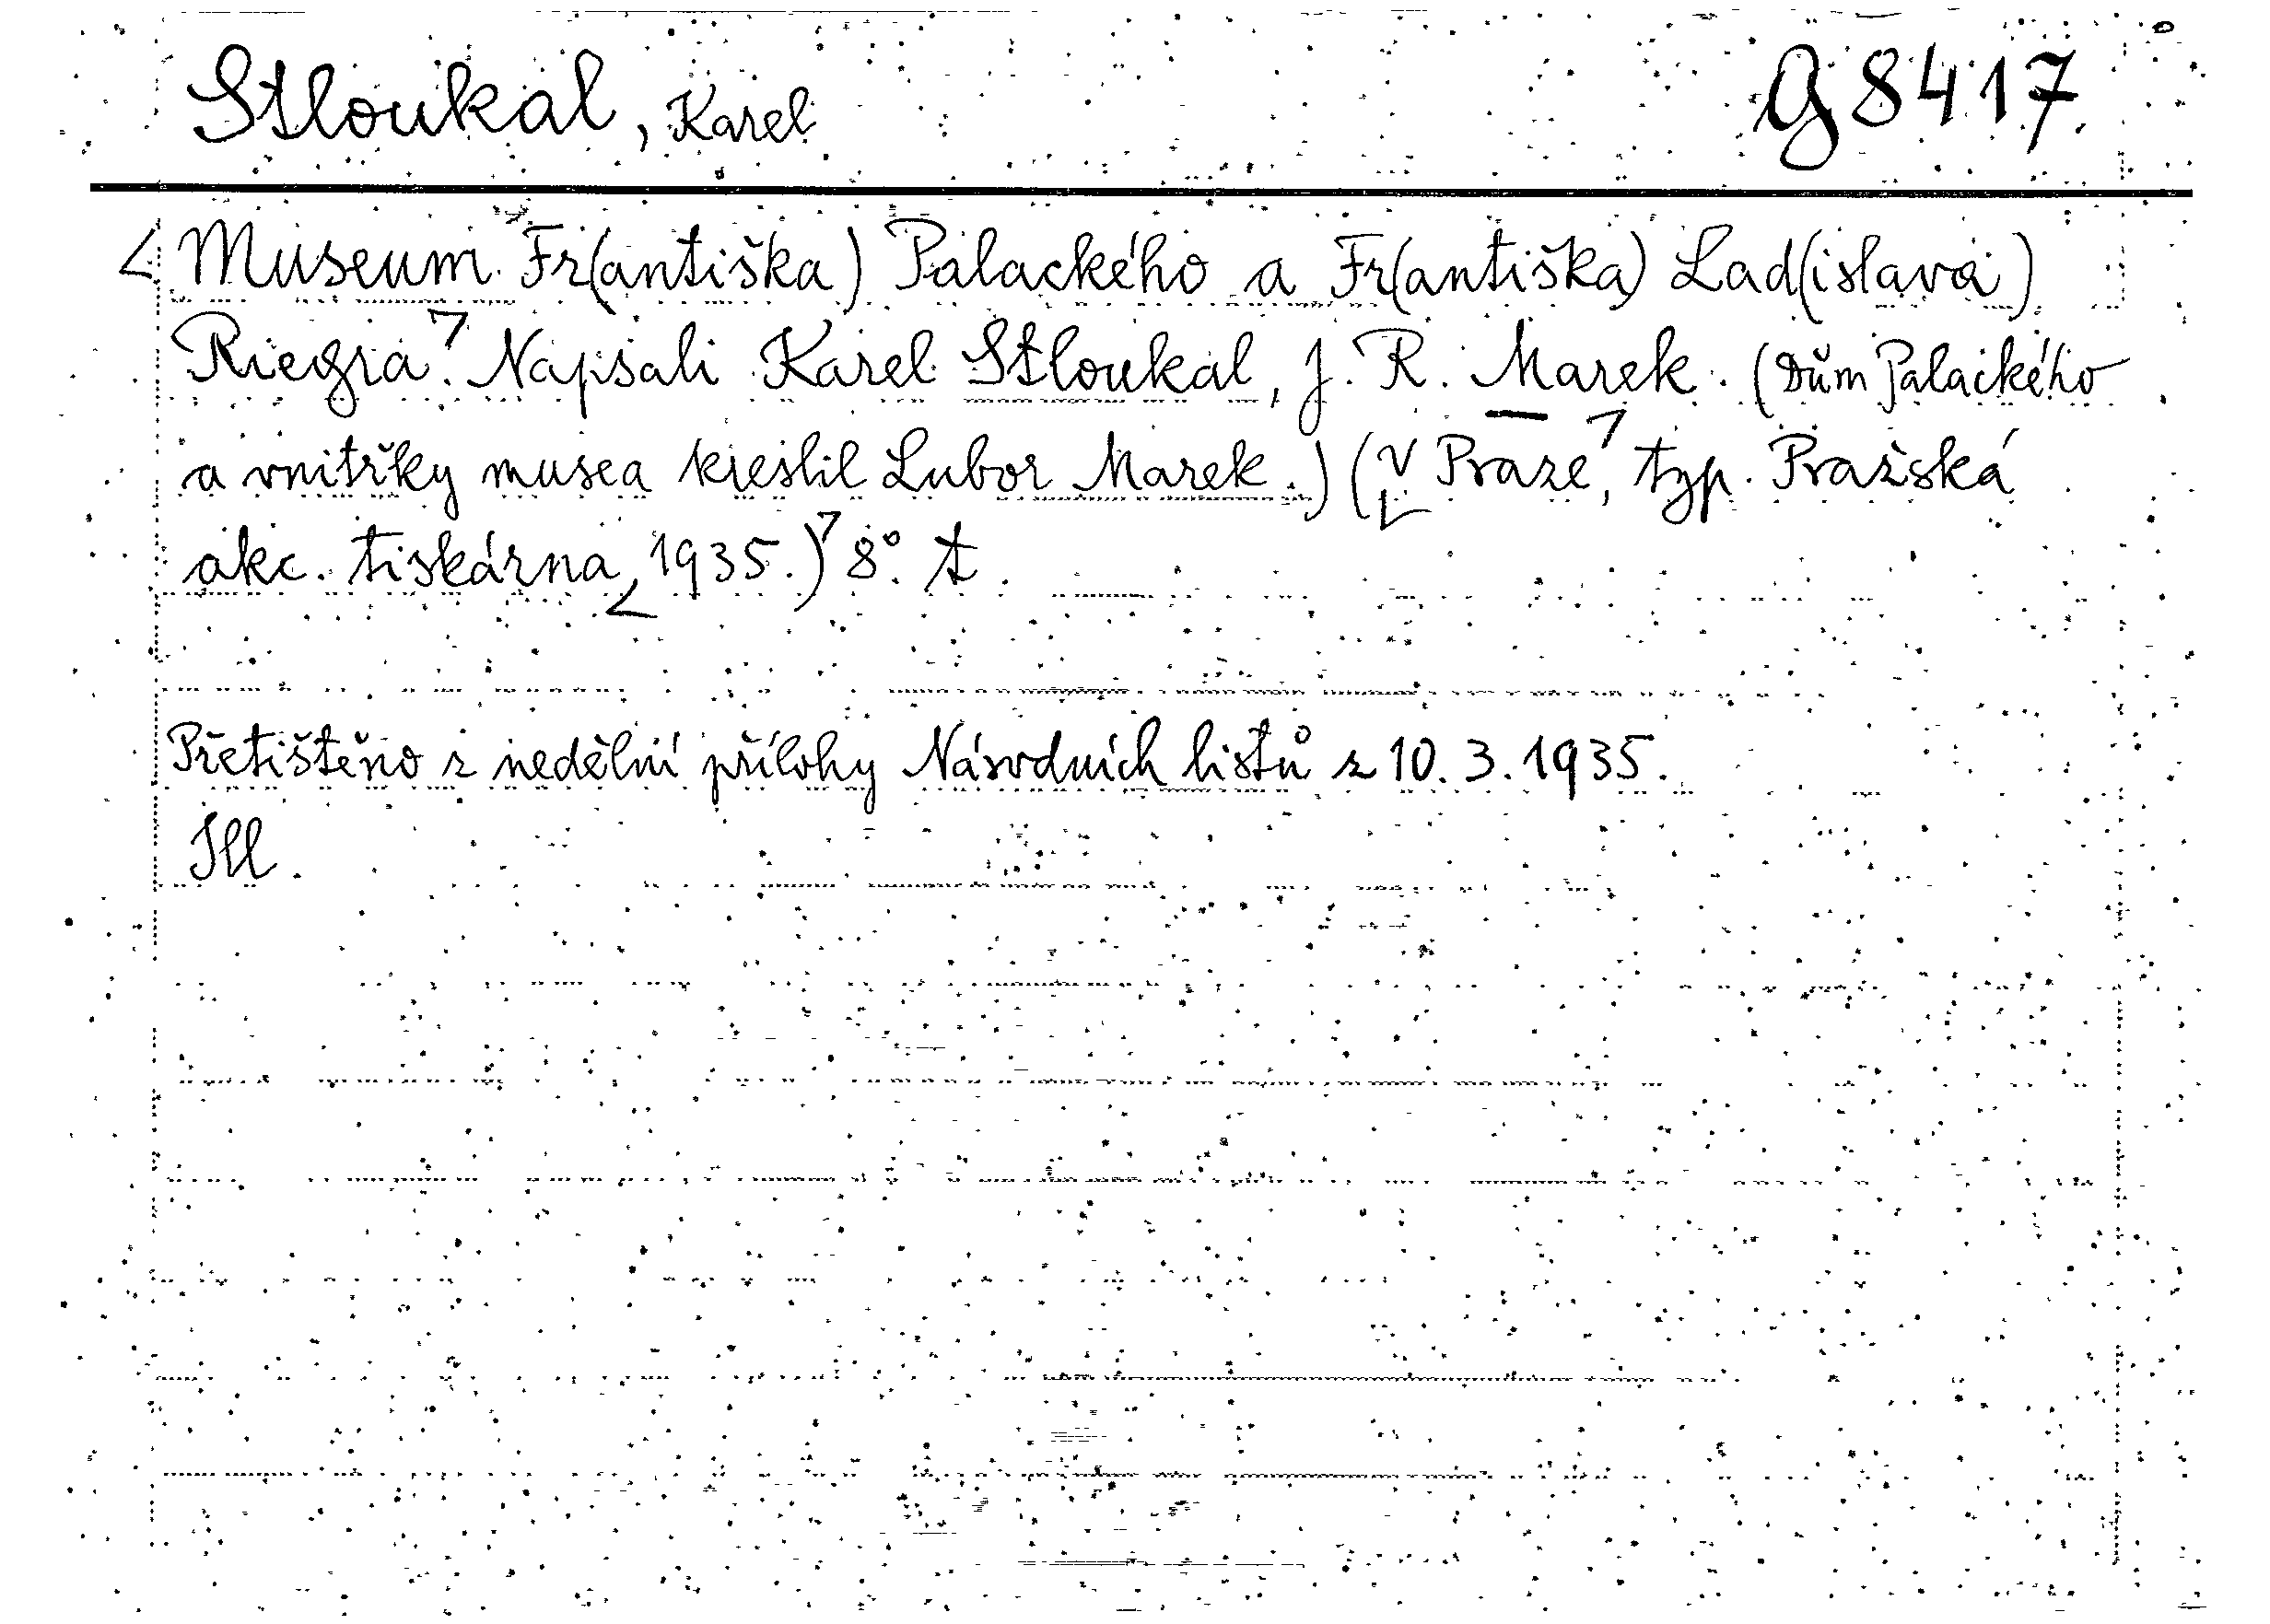 Stloukal, Karel G 8417
<Museum Fr(antiška) Palackého a Fr(antiška) Lad(islava)
Riegra.> Napsali Karel Stloukal, J. R. Marek. (Dům Palackého
a vnitřky musea kreslil Lubor Marek.) (<V Praze>, typ. Pražská
akc. tiskárna, <1935.)> 8°. t.
Přetištěno z nedělní přílohy Národních listů z 10. 3. 1935.
Ill.